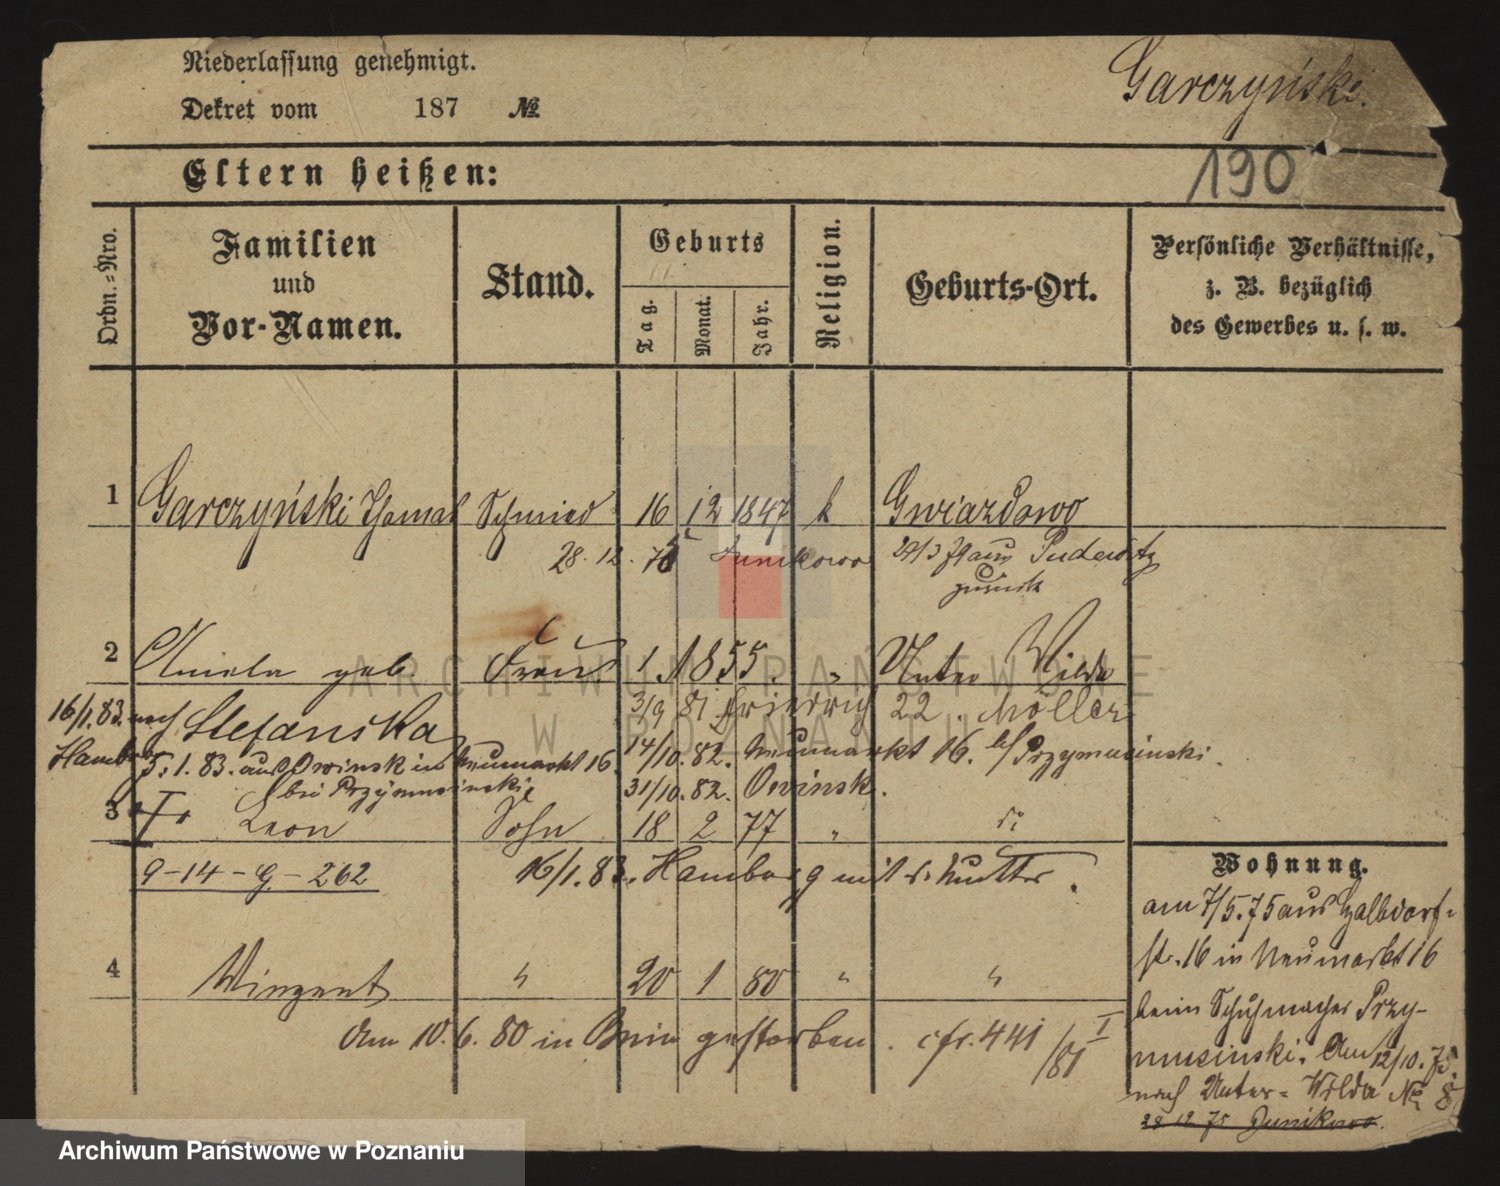 Niederlassung genehmigt.
Dekret vom 187 №
Garczyński.
190
Eltern heißen:
Ordn.=Nro.
Familien
und
Vor-Namen.
Stand.
Geburts
Tag.
Monat.
Jahr.
Religion.
Geburts-Ort.
Persönliche Verhältnisse,
z. B. bezüglich
des Gewerbes u. s. w.
1 Garczyński Thomas Schmied 16 12 1847 k Gwiazdowo
28. 12. 75 Junikowo 29/3 79 aus Pudewitz
zurück
2 Aniela geb. Frau 1. 1855. " Unter Wilda
16/1. 83. nach Stefanska 3/9 81 Friedrich 22. Möller
Hamb 5. 1. 83. aus Owinsk in Neumarkt 16. 14/10. 82. Neumarkt 16. b/ Przymusinski.
bei Przymusinski 31/10. 82. Owinsk.
3 Leon Sohn 18 2 77 "
9-14-G-262 16/1. 83. Hamburg mit d. Mutter.
4 Winzent " 20 1 80 " "
Am 10. 6. 80 in Bnin gestorben. cfr. 441/81 I
Wohnung.
am 7/5. 75 aus Halbdorf=
str. 16 in Neumarkt 16
beim Schuhmacher Przy-
musinski. Am 12/10. 75.
nach Unter=Wilda № 8
28 12 75 Junikowo.
ARCHIWUM PAŃSTWOWE
W POZNANIU
Archiwum Państwowe w Poznaniu